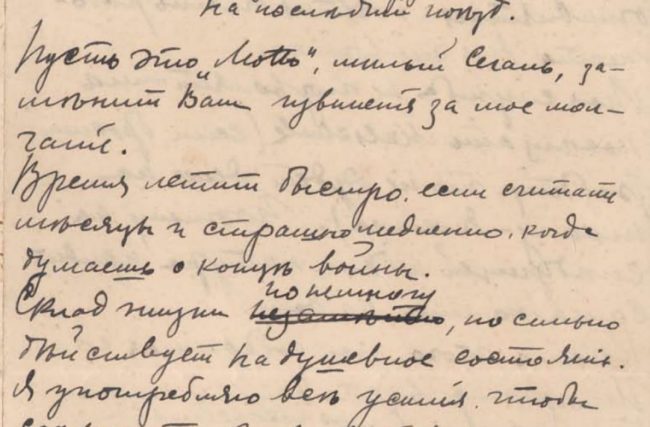 на последний
Пусть это „Motto“, милый Сегаль, за-
мѣнитъ Вамъ извиненія за мое мол-
чаніе.
Время летитъ быстро, если считать
мѣсяцы и страшно медленно, когда
думаешь о концѣ войны.
понемногу
Складъ жизни незамѣтно, но сильно
дѣйствуетъ на душевное состояніе.
Я употребляю всѣ усилія, чтобы